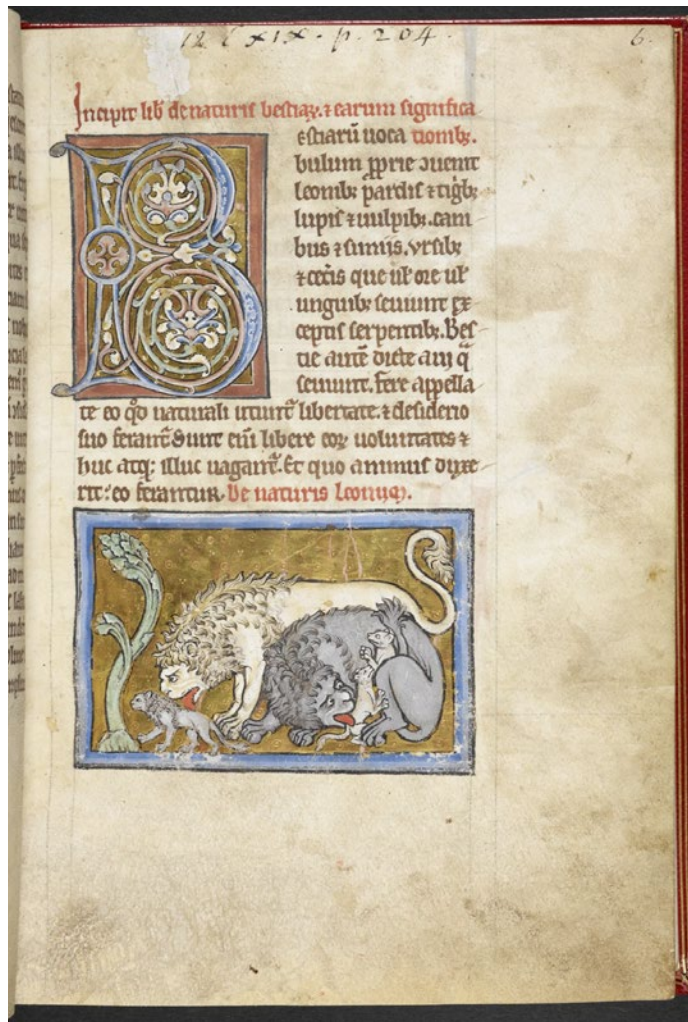 12 C XIX. p. 204. 6.
Incipit lib̄ de naturis bestiaꝝ. ⁊ earum significa
estiarū uoca tionibꝫ.
bulum ꝓprie ↄuenit
leonibꝫ pardis ⁊ tig̅bꝫ
lupis ⁊ uulpibꝫ. cani
bus ⁊ simiis. vrsibꝫ
⁊ cet̄is que ul̄ ore ul̄
unguibꝫ seuiunt ex
ceptis serpentibꝫ. Bes
tie autē dicte a ui q̄
seuiunt. fere appella
te eo qd̄ naturali utunt᷑ libertate. ⁊ desiderio
suo ferant᷑. Sunt eni᷑ libere eoꝝ uoluntates ⁊
huc atqꝫ illuc uagant᷑. Et quo animus duxe
rit: eo ferantur. De naturis leonum.